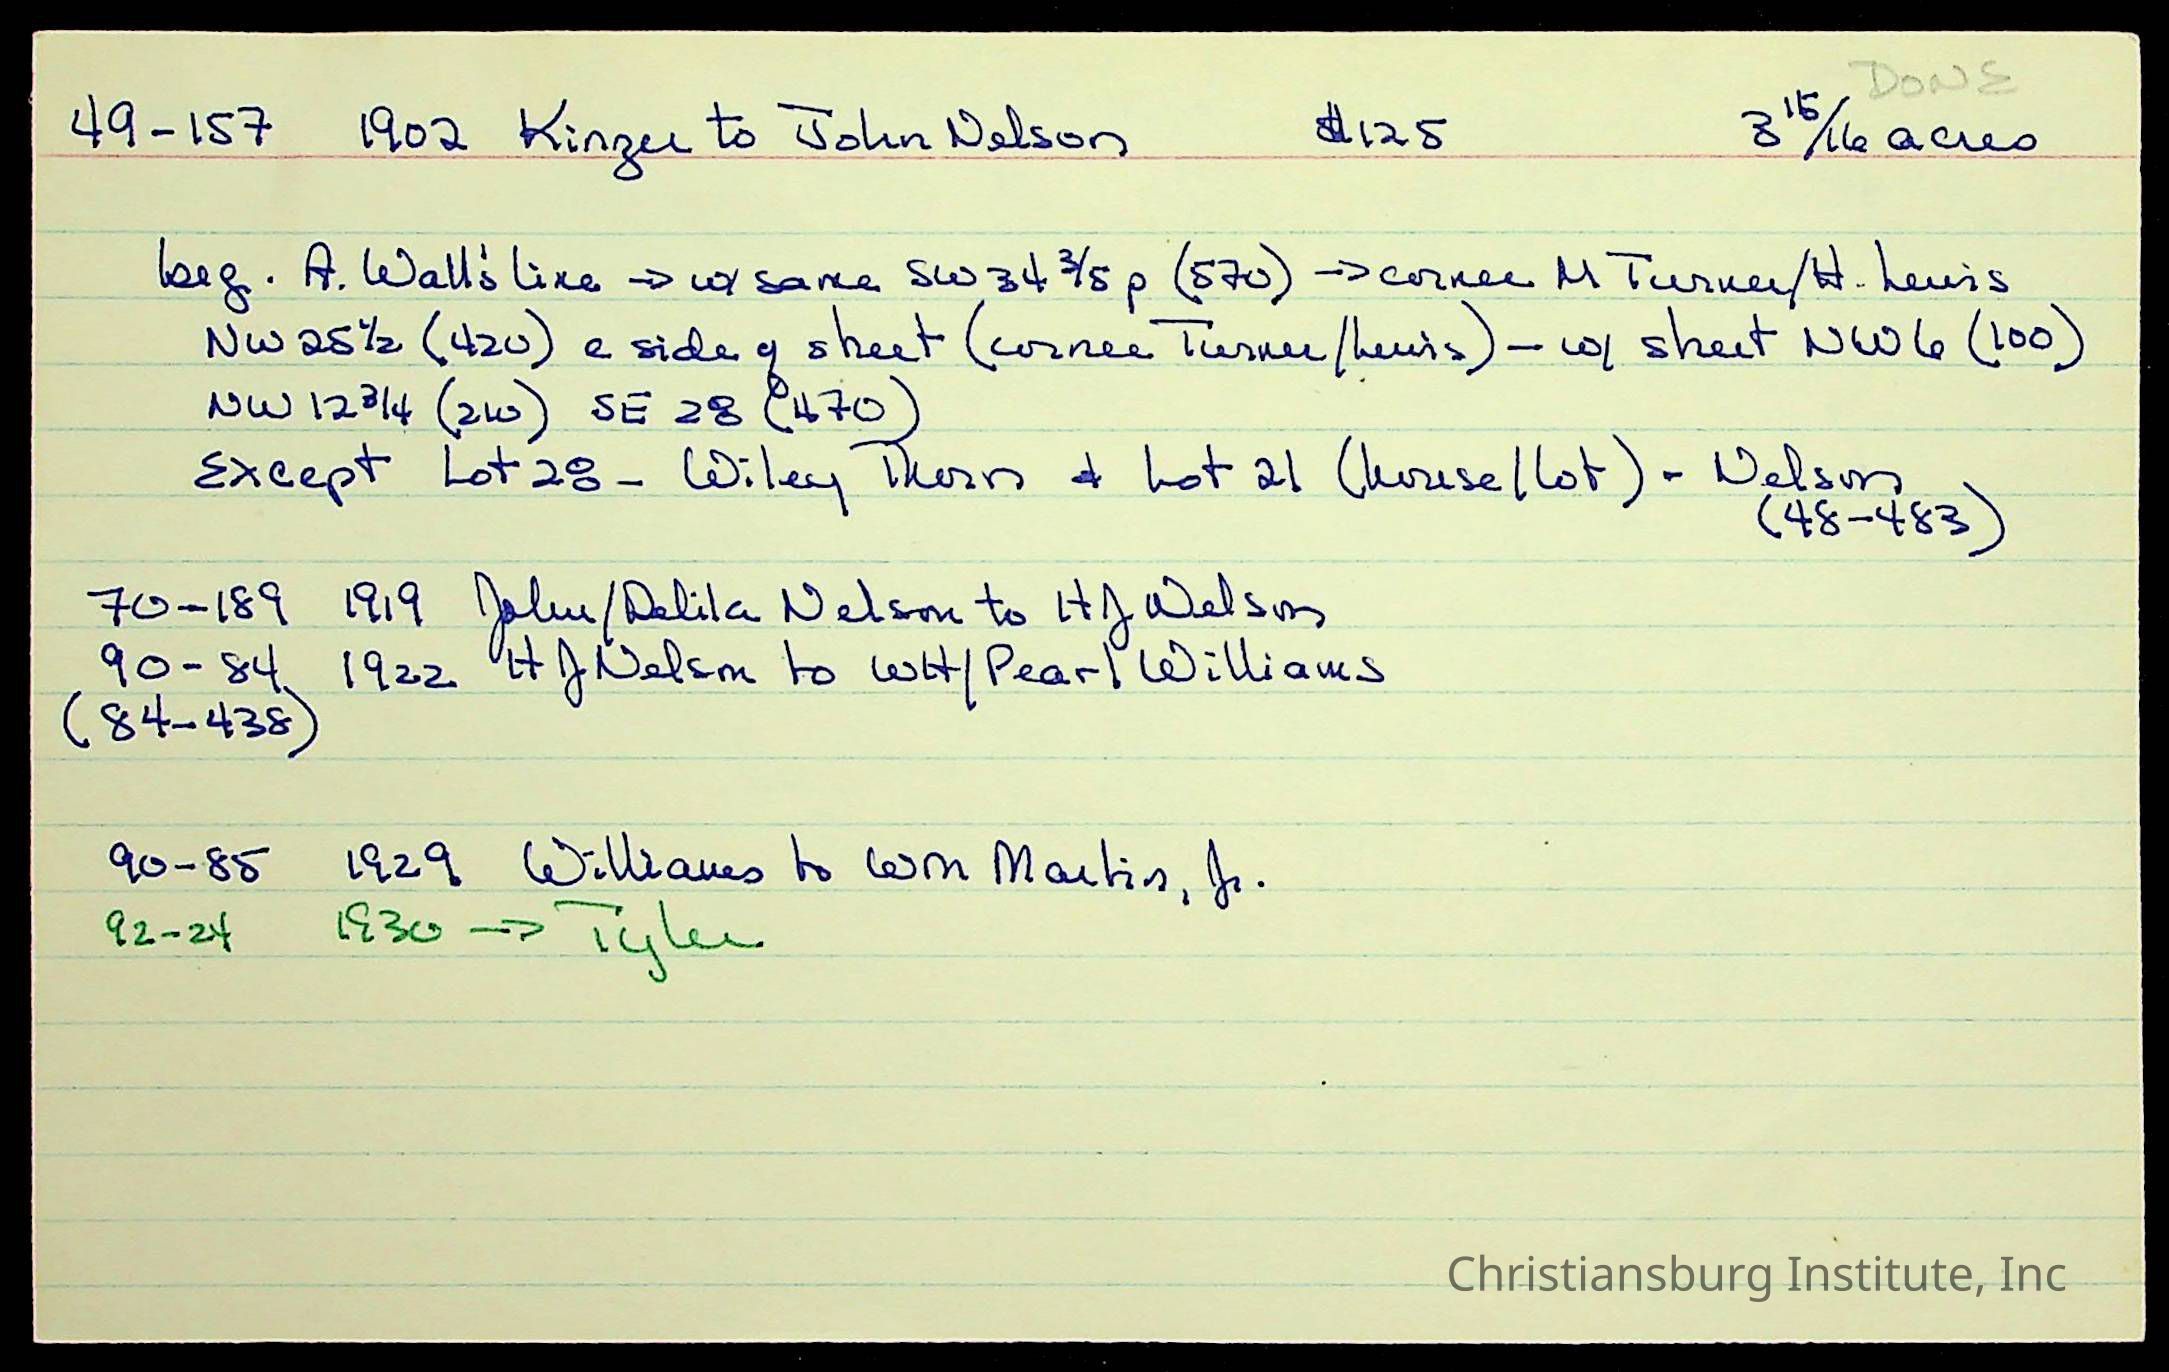 DONE
49-157 1902 Kinzer to John Nelson $125 3 15/16 acres
beg. A. Wall's line → w/ same SW 34 3/5 p (570) → corner M Turner/H. Lewis
NW 25 1/2 (420) e side of street (corner Turner/Lewis) - w/ street NW 6 (100)
NW 12 3/4 (210) SE 28 (470)
Except Lot 28 - Wiley Thorn & Lot 21 (house/lot) - Nelson
(48-483)
70-189 1919 John/Delila Nelson to HJ Nelson
90-84 1922 HJ Nelson to WH/Pearl Williams
(84-438)
90-85 1929 Williams to Wm Martin, Jr.
92-24 1930 → Tyler
Christiansburg Institute, Inc